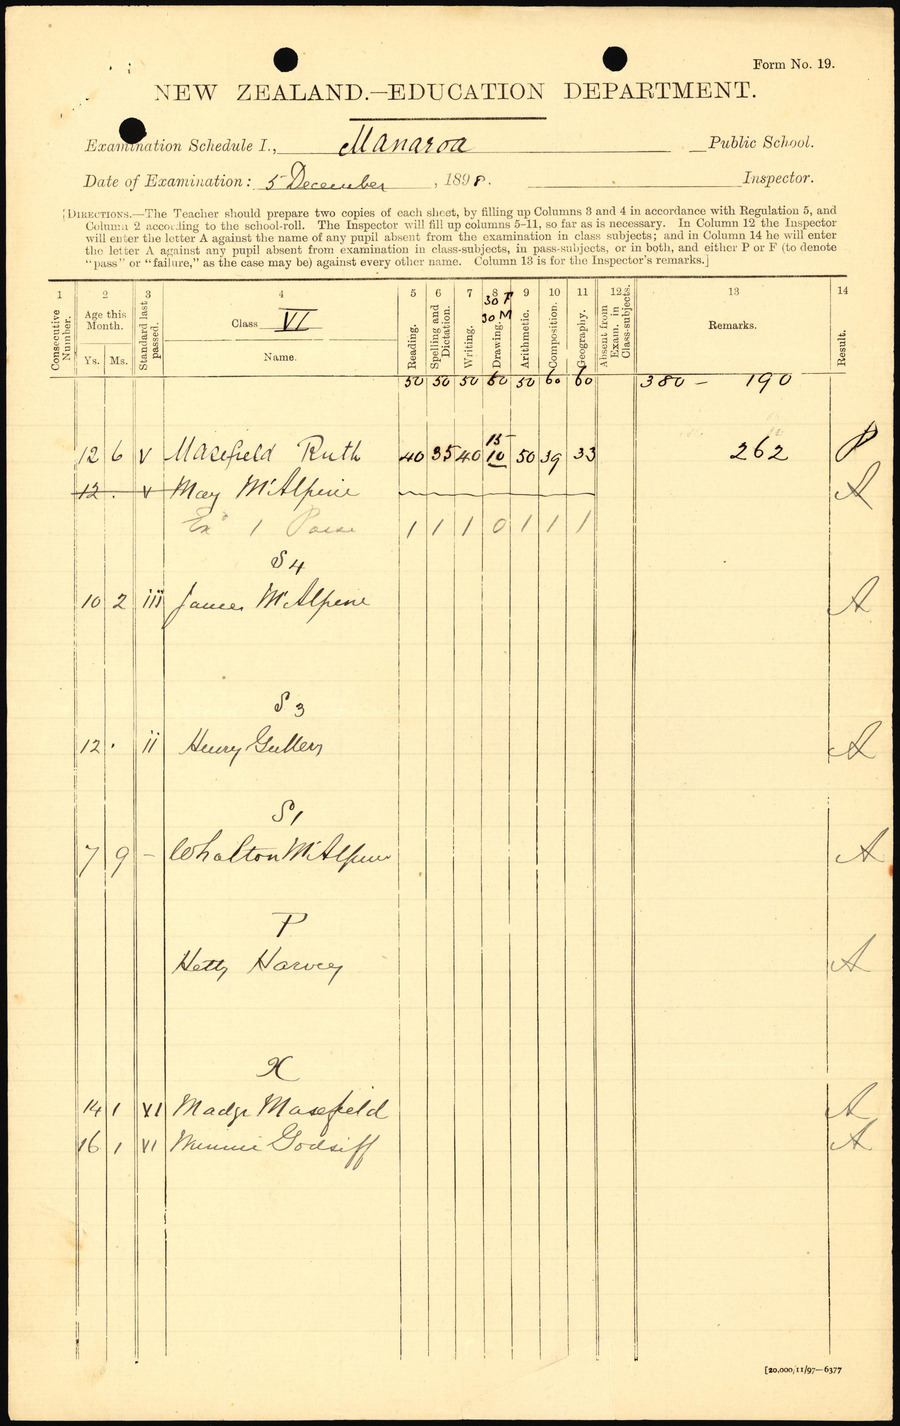 Form No. 19.
NEW ZEALAND.—EDUCATION DEPARTMENT.
Examination Schedule I., Manaroa Public School.
Date of Examination: 5 December, 1898. Inspector.
[DIRECTIONS.—The Teacher should prepare two copies of each sheet, by filling up Columns 3 and 4 in accordance with Regulation 5, and
Column 2 according to the school-roll. The Inspector will fill up columns 5-11, so far as is necessary. In Column 12 the Inspector
will enter the letter A against the name of any pupil absent from the examination in class subjects; and in Column 14 he will enter
the letter A against any pupil absent from examination in class-subjects, in pass-subjects, or in both, and either P or F (to denote
"pass" or "failure," as the case may be) against every other name. Column 13 is for the Inspector's remarks.]
1 2 3 4 5 6 7 8 9 10 11 12 13 14
Consecutive Number. Age this Month. Ys. Ms. Standard last passed. Class VI Name. Reading. Spelling and Dictation. Writing. 30 F 30 M Drawing. Arithmetic. Composition. Geography. Absent from Exam. in Class-subjects. Remarks. Result.
50 50 50 60 50 60 60 380 — 190
12 6 V Masefield Ruth 40 35 40 15 10 50 39 33 262 P
12 . V May McAlpine A
Ex 1 Passe 1 1 1 0 1 1 1
S 4
10 2 iii James McAlpine A
S 3
12 . ii Henry Gullery A
S 1
7 9 – Whalton McAlpine A
P
Hetty Harvey A
X
14 1 VI Madge Masefield A
16 1 VI Winnie Godsiff A
[20,000/11/97—6377